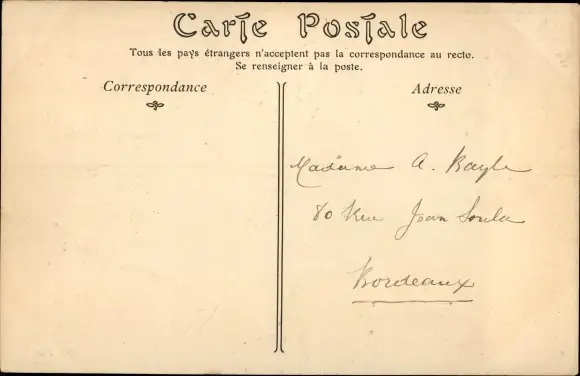 Carte Postale
Tous les pays étrangers n'acceptent pas la correspondance au recto.
Se renseigner à la poste.
Correspondance
Adresse
Madame A. Bayle
80 Rue Jean Soula
Bordeaux